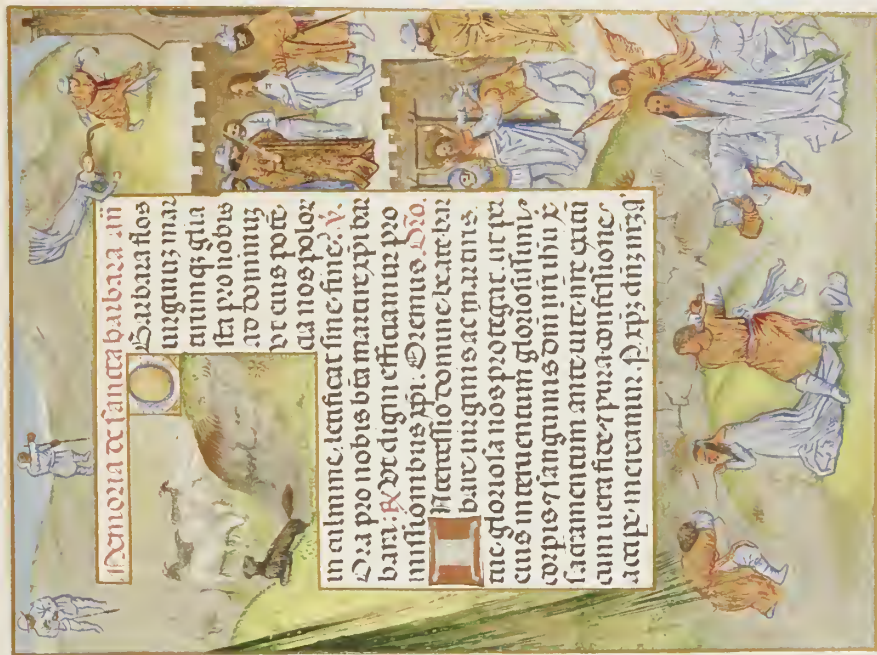 Memoria de sancta barbara añ
O Barbara flos
uirginuz mar
tirumqz glīa
sta pro nobis
ad dominuz
vt eius potē
cia nos polor
in culmine. letificat sine fine. V.
Ora pro nobis btā martir xpi bar
bara. R Vt digni efficiamur pro
missionibus xpi. Oremus. Oro.
Intercessio domine beate bar
bare uirginis ac martiris.
tue gloriosa nos protegat. ut per
eius interuentum gloriosissimi
corpis ⁊ sanguinis dnī nrī ihū x
sacramentum ante uite nrē exitū
cum uera fide ⁊ pura confessione
accipe mereamur. P xpz dnz nrz